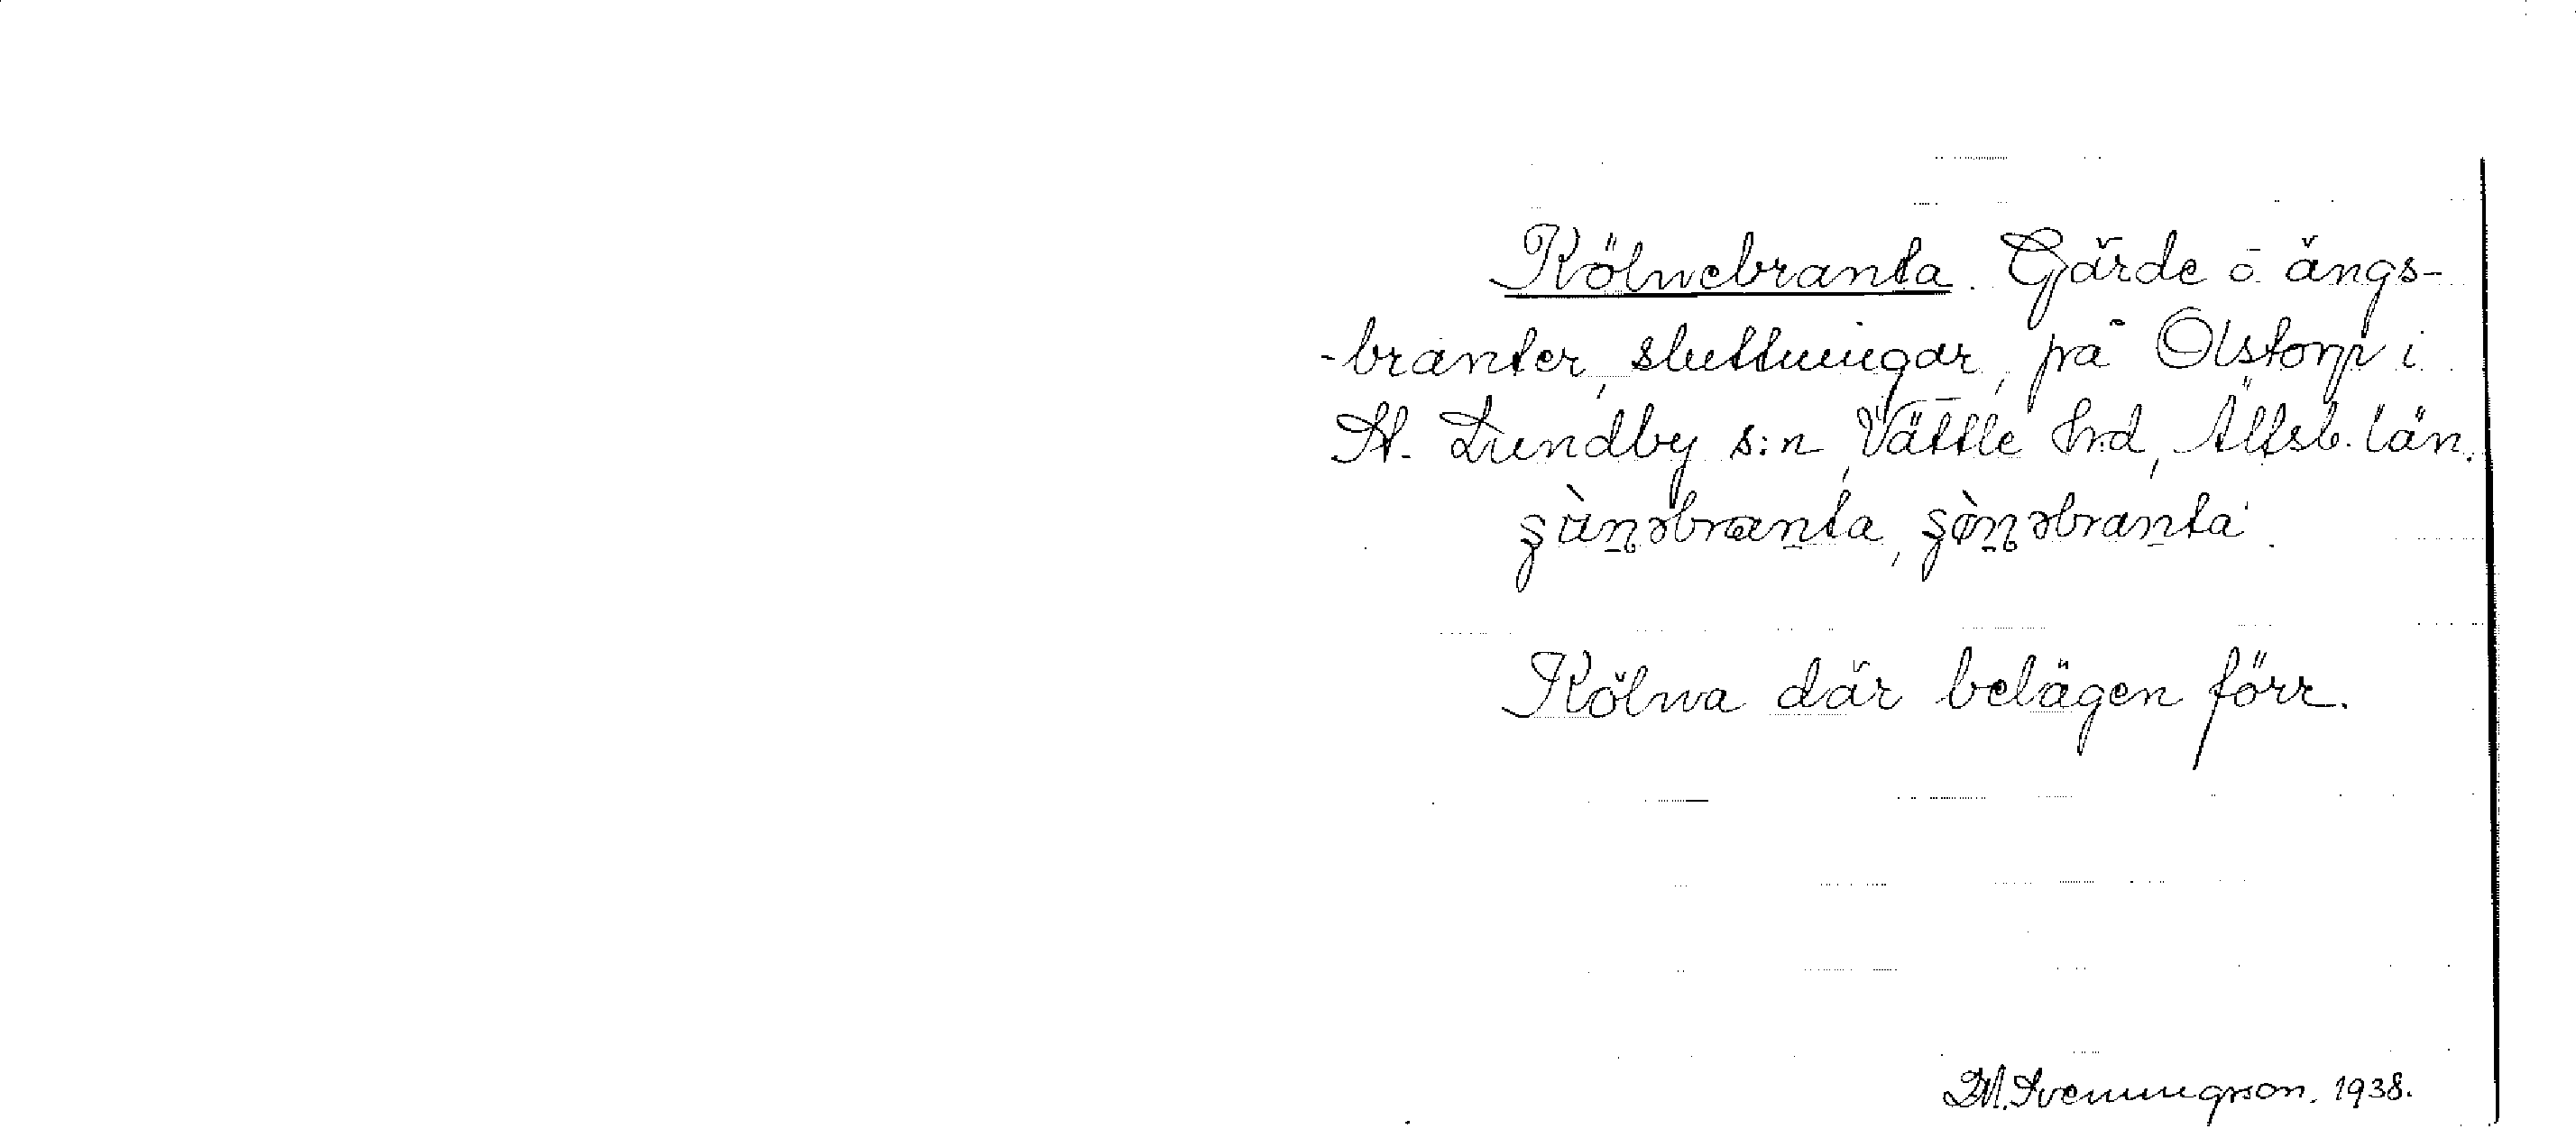 Kölnebranta. Gärde o ängs-
-branter, sluttningar, på Olstorp i
St. Lundby s:n, Vättle hrd, Älfsb. län.
branta, branta.
Kölna där belägen förr.
D.M. Svenningson. 1938.